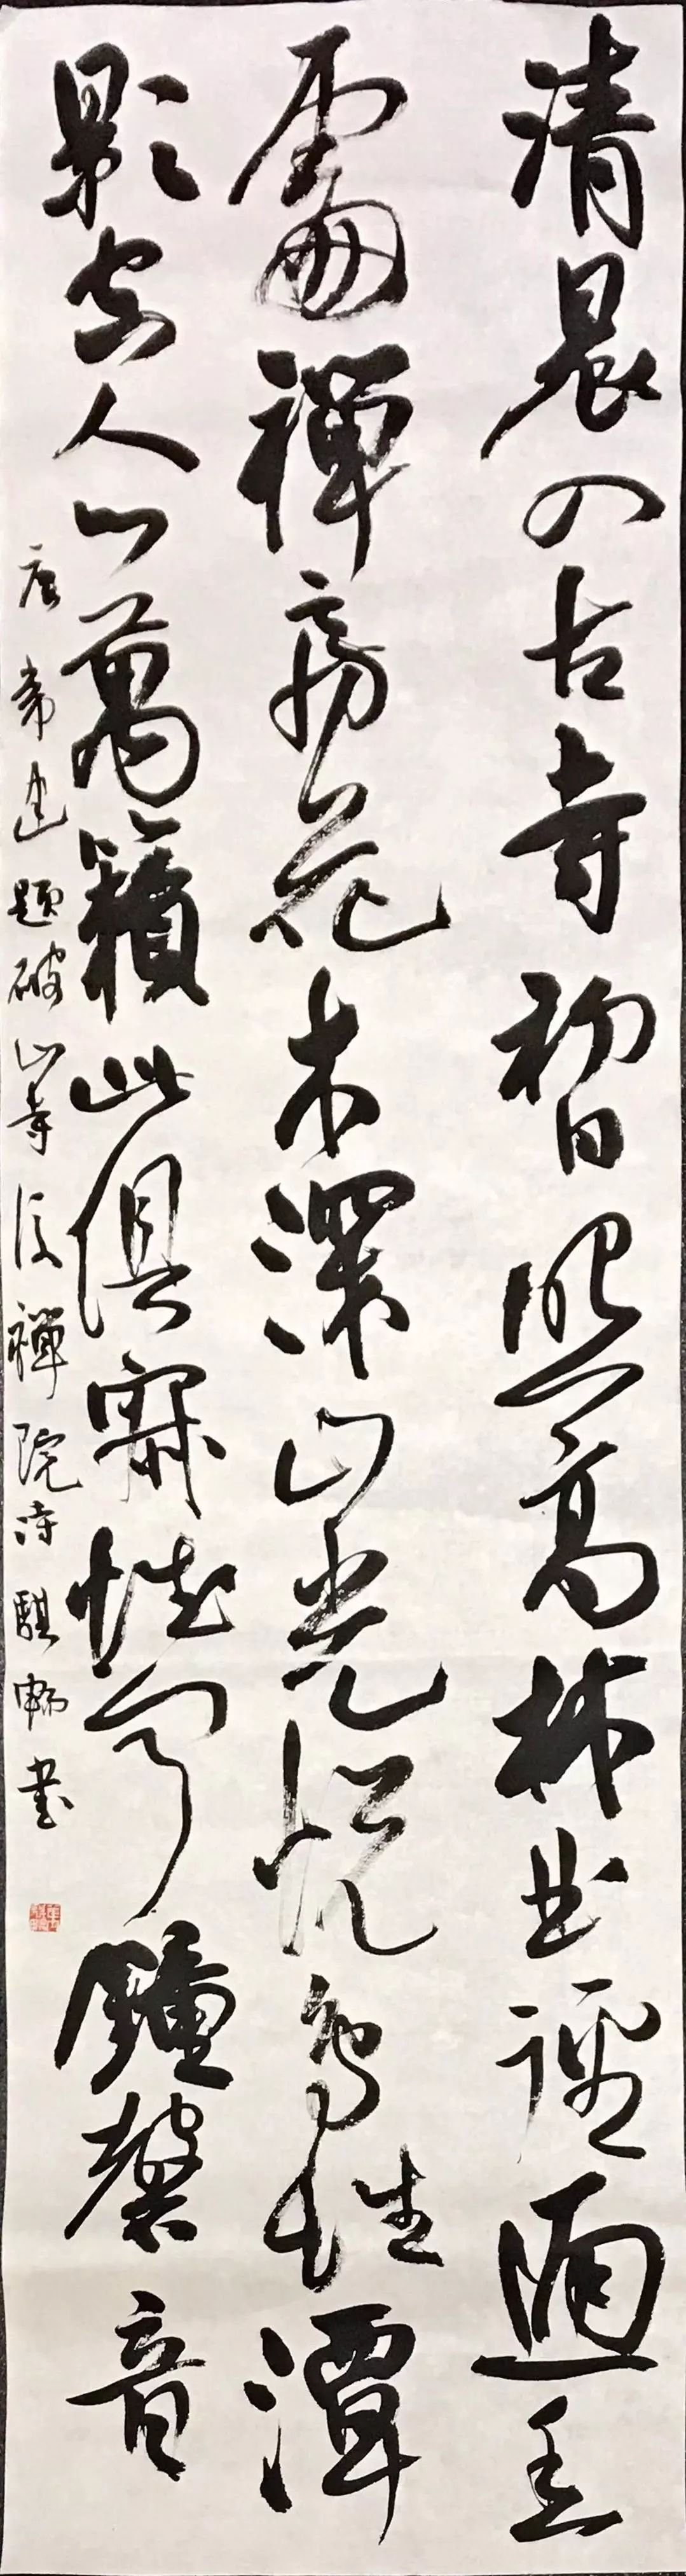 清晨入古寺初日照高林曲徑通幽
處禪房花木深山光悅鳥性潭
影空人心萬籟此俱寂惟聞鐘磬音
唐常建題破山寺後禪院詩騏暢書